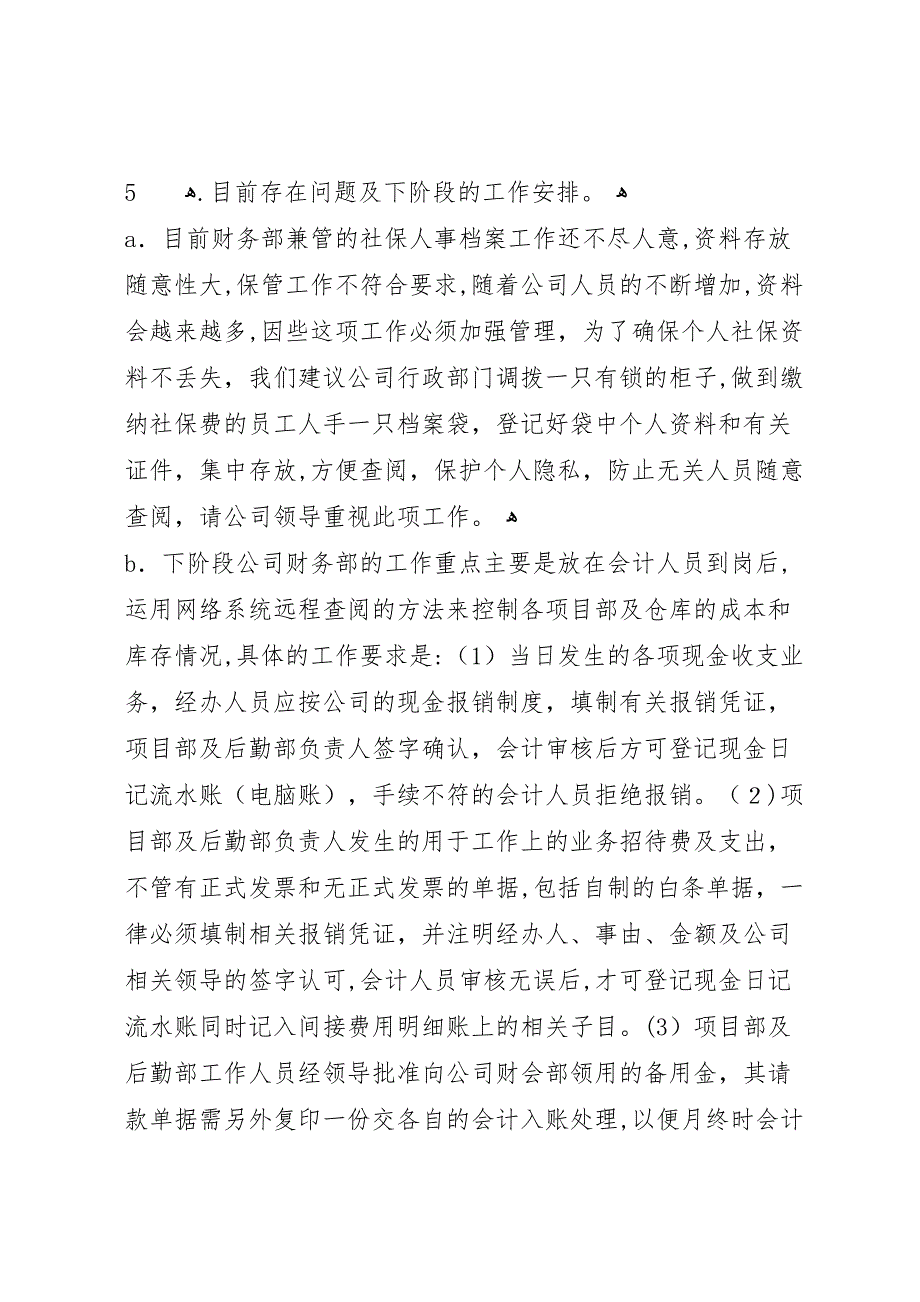 5 ﻫ.目前存在问题及下阶段的工作安排。ﻫ
a．目前财务部兼管的社保人事档案工作还不尽人意,资料存放
随意性大,保管工作不符合要求,随着公司人员的不断增加,资料
会越来越多,因些这项工作必须加强管理，为了确保个人社保资
料不丢失，我们建议公司行政部门调拨一只有锁的柜子,做到缴
纳社保费的员工人手一只档案袋，登记好袋中个人资料和有关
证件，集中存放,方便查阅，保护个人隐私，防止无关人员随意
查阅，请公司领导重视此项工作。ﻫ
b．下阶段公司财务部的工作重点主要是放在会计人员到岗后,
运用网络系统远程查阅的方法来控制各项目部及仓库的成本和
库存情况,具体的工作要求是:（1）当日发生的各项现金收支业
务，经办人员应按公司的现金报销制度，填制有关报销凭证，
项目部及后勤部负责人签字确认，会计审核后方可登记现金日
记流水账（电脑账），手续不符的会计人员拒绝报销。（２)项
目部及后勤部负责人发生的用于工作上的业务招待费及支出，
不管有正式发票和无正式发票的单据,包括自制的白条单据，一
律必须填制相关报销凭证，并注明经办人、事由、金额及公司
相关领导的签字认可,会计人员审核无误后,才可登记现金日记
流水账同时记入间接费用明细账上的相关子目。(3）项目部及
后勤部工作人员经领导批准向公司财会部领用的备用金，其请
款单据需另外复印一份交各自的会计入账处理,以便月终时会计